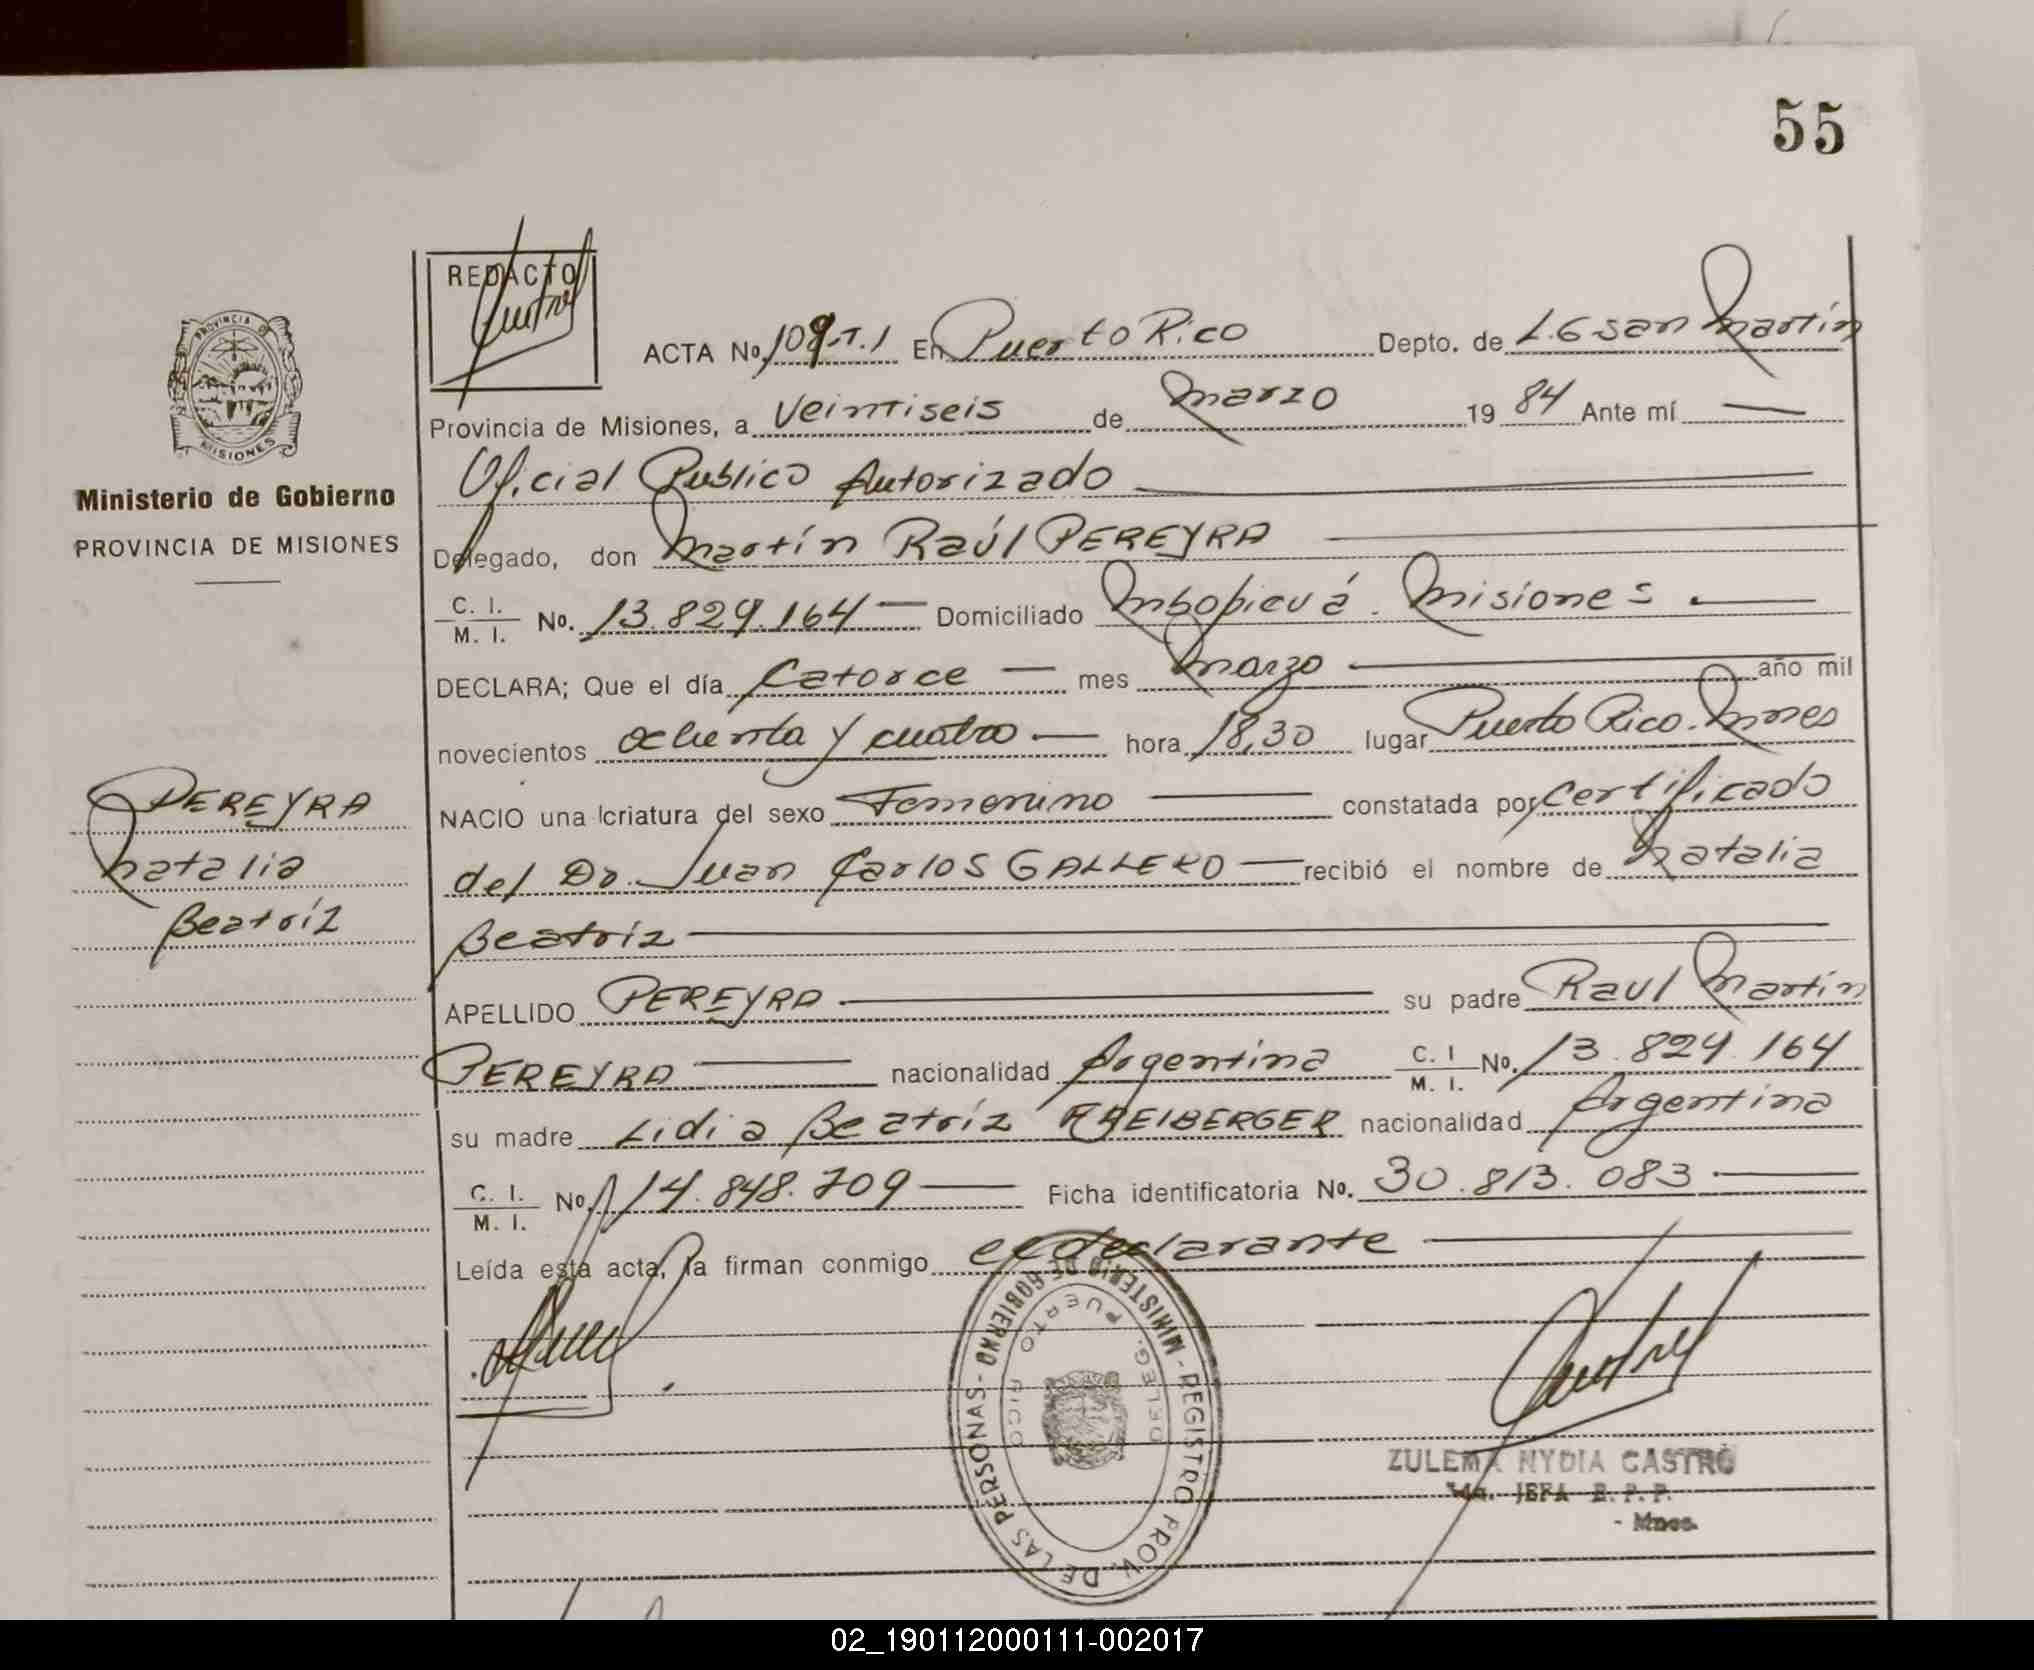 55
REDACTO
ACTA No. 109-T.I En Puerto Rico Depto. de L.G San Martín
Provincia de Misiones, a Veintiseis de Marzo 19 84 Ante mí
Oficial Publico Autorizado
Delegado, don Martín Raúl PEREYRA
C. I.
M. I. No. 13.829.164 Domiciliado Mbopicuá. Misiones
DECLARA; Que el día Catorce mes Marzo año mil
novecientos ochenta y cuatro hora 18,30 lugar Puerto Rico. Mnes
NACIO una criatura del sexo Femenino constatada por Certificado
del Dr. Juan Carlos GALLERO recibió el nombre de Natalia
Beatriz
APELLIDO PEREYRA su padre Raul Martín
PEREYRA nacionalidad Argentina C. I
M. I. No. 13.829.164
su madre Lidia Beatríz nacionalidad Argentina
C. I.
M. I. No. 14.848.709 Ficha identificatoria No. 30.813.083
Leída esta acta, la firman conmigo el declarante
PROVINCIA DE
MISIONES
Ministerio de Gobierno
PROVINCIA DE MISIONES
PEREYRA
Natalia
Beatríz
MINISTERIO DE GOBIERNO - REGISTRO PROV. DE LAS PERSONAS -
DELEG. PUERTO RICO
ZULEMA NYDIA CASTRO
JEFA R.P.P.
- Mnes.
02_190112000111-002017